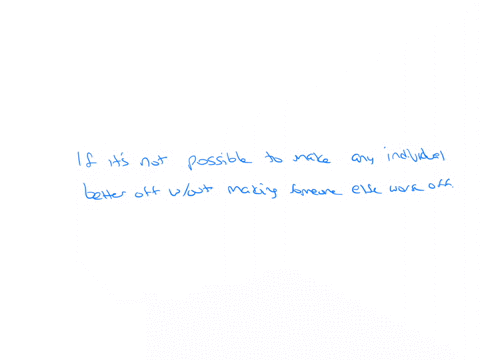 If it's not possible to make any individual
better off w/out making someone else worse off.